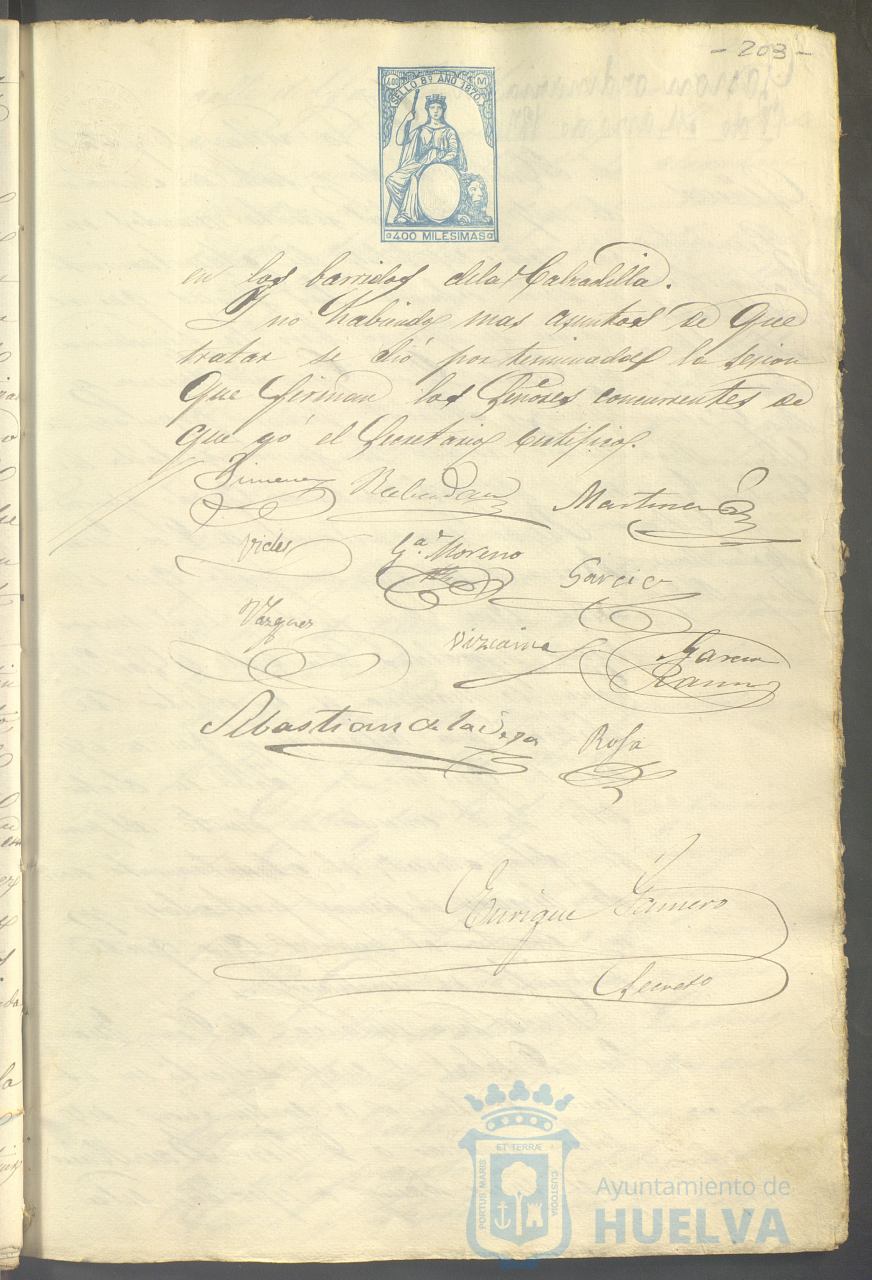 - 203 -
400 M
SELLO 8º AÑO 1870
400 MILESIMAS
en los barridos dela Calzadilla.
Y no habiendo mas asuntos de que
tratar se dió por terminada la sesion
que firman los Señores concurrentes de
que yó el Secretario certifico.
Martinez
Vides
Gª Moreno
Garcia
Vazquez
Vizcaino
Garcia
Ramos
Sebastian de la Vega
Rosa
Enrique Gamero
Secreto
ET TERRÆ
PORTUS MARIS
CUSTODIA
Ayuntamiento de
HUELVA